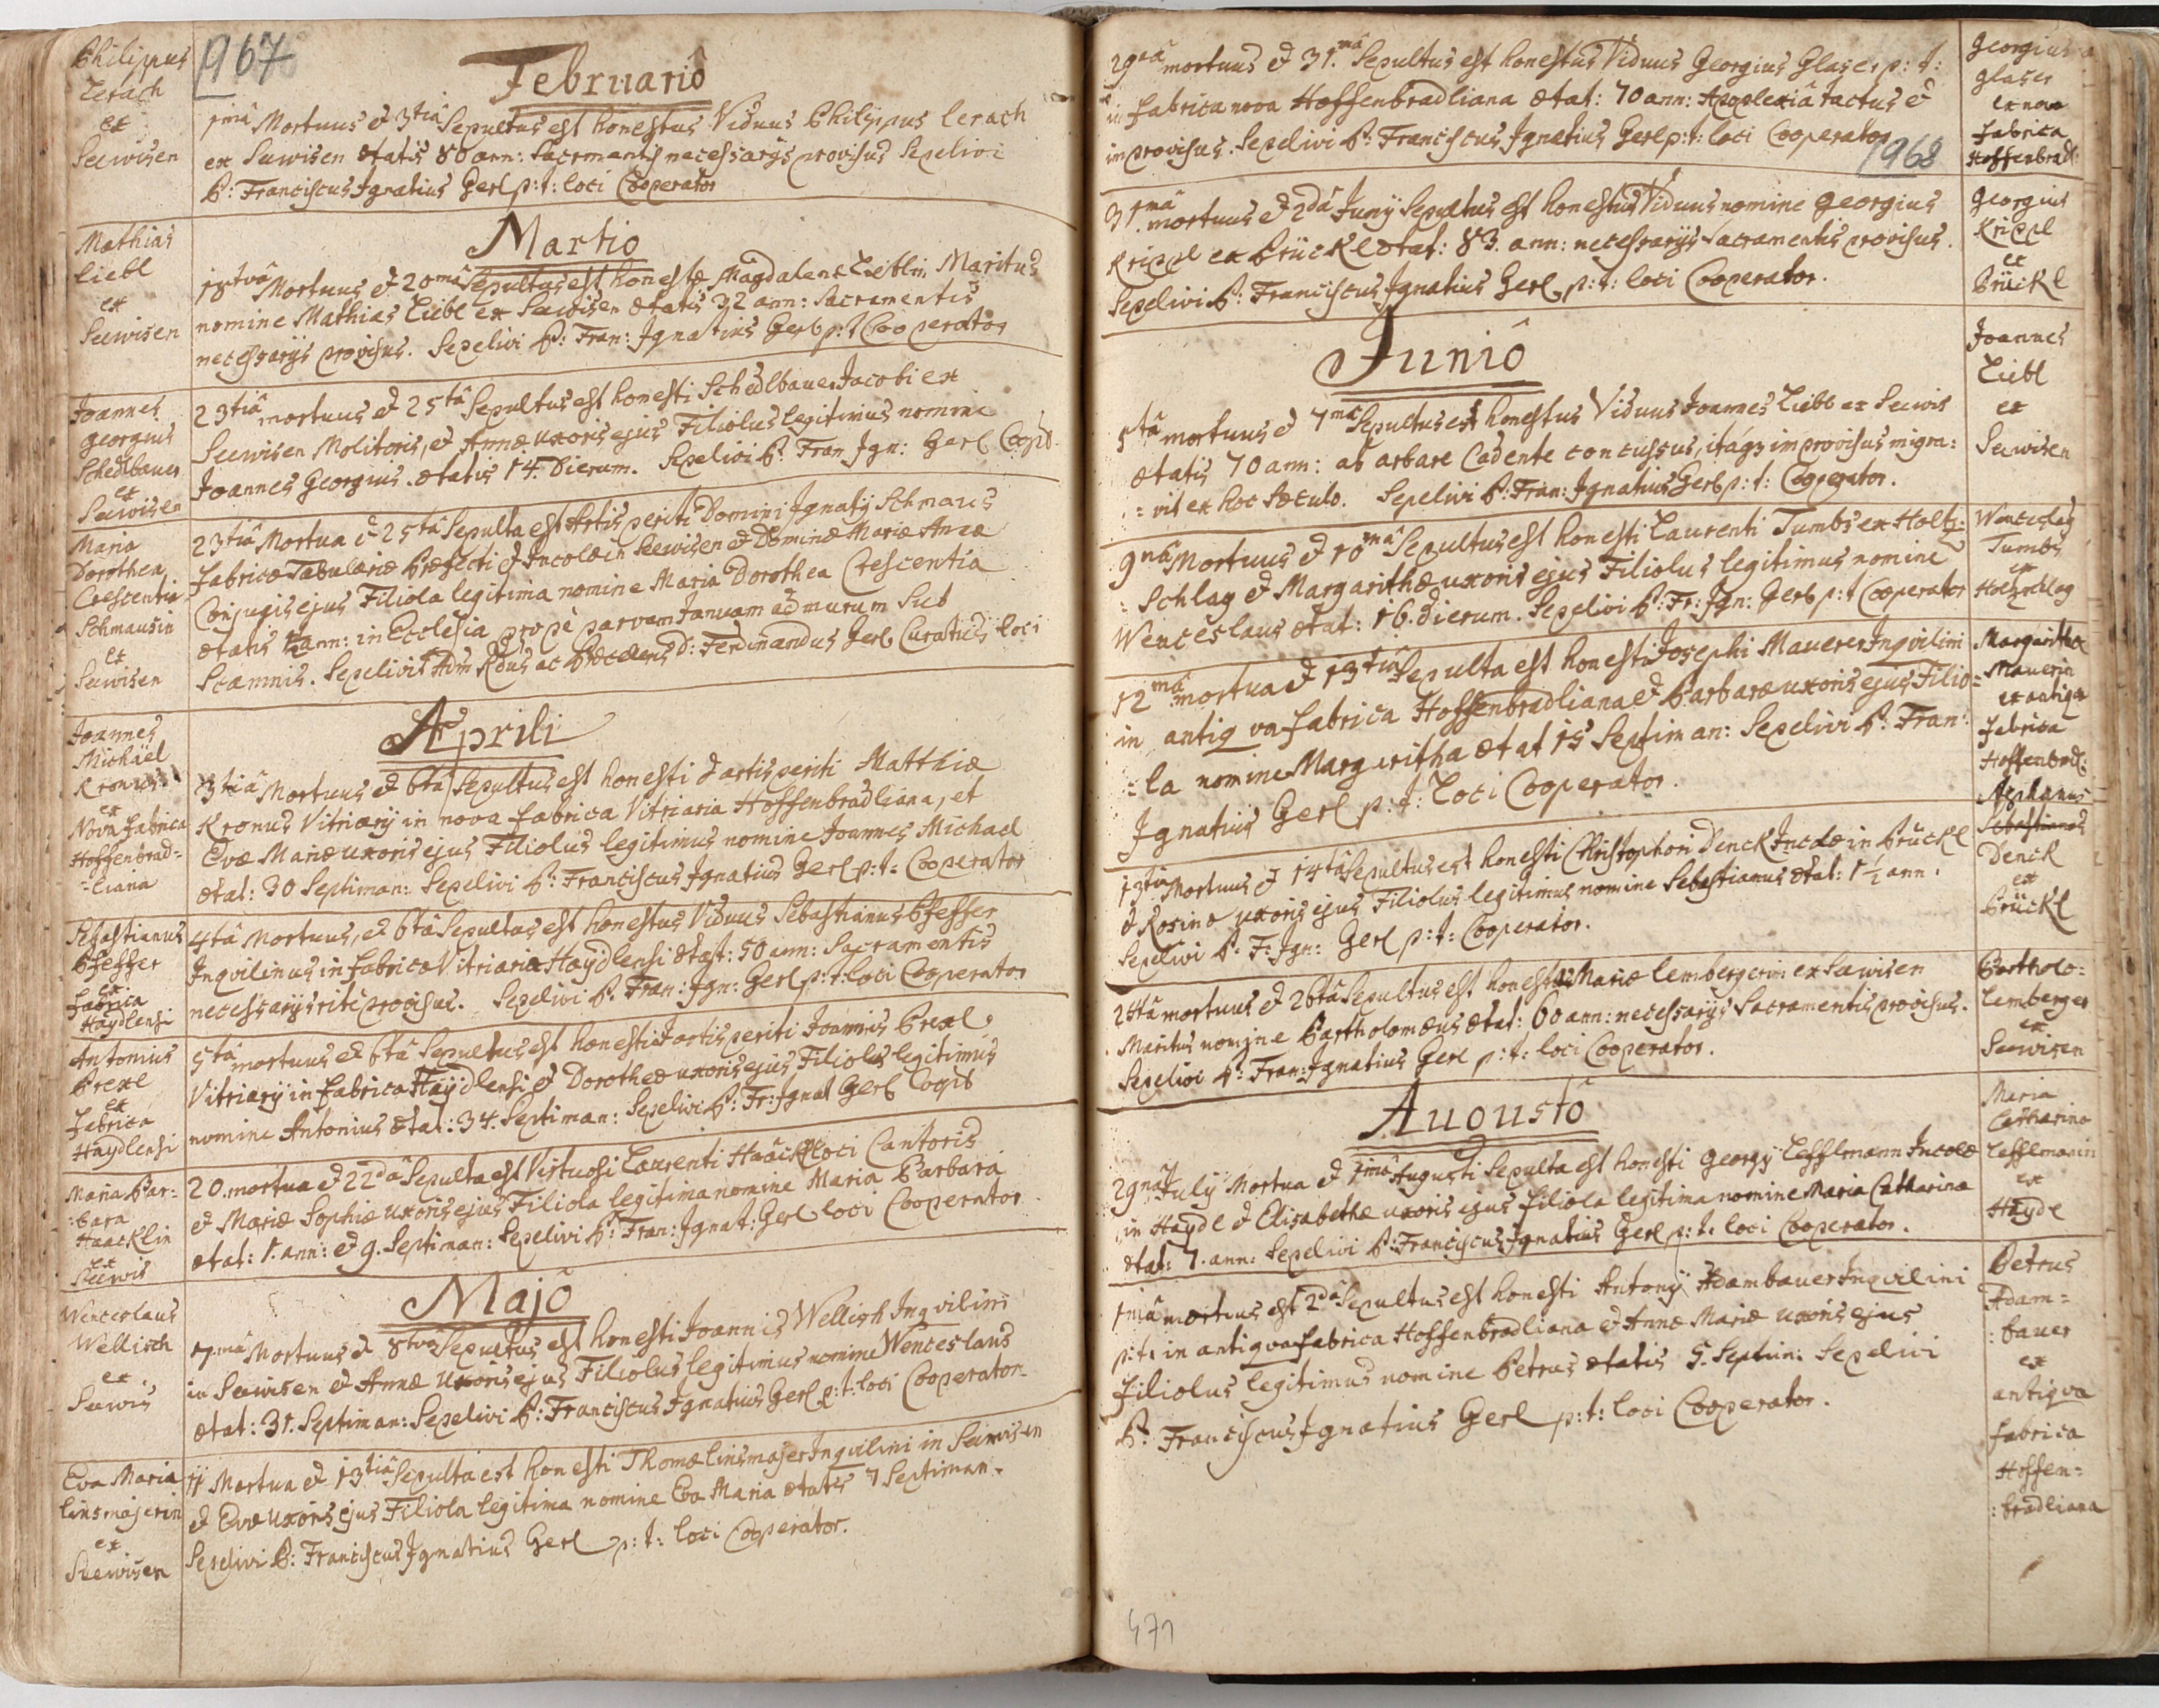 Philippus
Lerach
ex
Seewisen
1967
Februariô
1mâ Mortuus & 3tiâ Sepultus est honestus Viduus Philippus Lerach
ex Seewisen ætatis 80 ann: Sacrmentis necessarijs provisus Sepelivi
P: Franciscus Ignatius Gerl p: t: loci Cooperator
Mathias
Liebl
ex
Seewisen
Martio
18tvâ Mortuus & 20mâ Sepultus est honestæ Magdalenæ Lieblin Maritus
nomine Mathias Liebl ex Seewisen ætatis 32 ann: Sacramentis
necessarijs provisus. Sepelivi P: Fran: Ignatius Gerl p: t Cooperator
Joannes
Georgius
Schedlbauer
ex
Seewisen
23tiâ mortuus & 25tâ Sepultus est honesti Schedlbauer Jacobi ex
Seewisen Molitoris, & Annæ uxoris ejus Filiolus legitimus nomine
Joannes Georgius. ætatis 14. Dierum. Sepelivi P: Fran Ign: Gerl Coopr.
Maria
Dorothea
Crescentia
Schmausin
ex
Seewisen
23tiâ Mortua & 25tâ Sepulta est Artis periti Domini Ignatij Schmaus
Fabricæ Tabulariæ Præfecti & Incolæ in Seewisen & Dominæ Mariæ Annæ
Conjugis ejus Filiola legitima nomine Maria Dorothea Crescentia
ætatis ½ ann: in Ecclesia propè parvam Januam ad murum Sub
Scamnis. Sepelivit Adm Rdus ac D: Ferdinandus Gerl Curatus loci
Joannes
Michaël
Kronus
ex
Nova fabrica
Hoffenbrad=
=liana
Aprili
3tiâ Mortuus & 6tâ Sepultus est honesti & artis periti Matthiæ
Kronus Vitriarij in nova fabrica Vitriaria Hoffenbradliana, et
Evæ Mariæ uxoris ejus Filiolus legitimus nomine Joannes Michael
ætat: 30 Septiman: Sepelivi P: Franciscus Ignatius Gerl p: t: Cooperator
Sebastianus
Pfeffer
ex
fabrica
Haydlensi
4tâ Mortuus, & 6tâ Sepultus est honestus Viduus Sebastianus Pfeffer
Inqvilinus in fabrica Vitriaria Haydlensi ætat: 50 ann: Sacramentis
necessarijs ritè provisus. Sepelivi P. Fran: Ign: Gerl p: t: loci Cooperator
Antonius
Prexl
ex
fabrica
Haydlensi
5tâ mortuus & 6tâ Sepultus est honesti & artis periti Joannis Prexl
Vitriarij in fabrica Haydlensi & Dorotheæ uxoris ejus Filiolus legitimus
nomine Antonius ætat: 34. Septiman: Sepelivi P: Fr: Ignat Gerl Coopr
Maria Bar=
:bara
Haacklin
ex
Seewis
20. mortua & 22dâ Sepulta est Virtuosi Laurenti Haackl loci Cantoris
& Mariæ Sophiæ uxoris ejus Filiola legitima nomine Maria Barbara
ætat: 1. ann: & 9. Septiman: Sepelivi P: Fran: Ignat: Gerl loci Cooperator
Wenceslaus
Wellisch
ex
Seewis
Majô
7mâ Mortuus & 8tvâ Sepultus est honesti Joannis Wellish Inqvilini
in Seewisen & Annæ uxoris ejus Filiolus legitimus nomine Wenceslaus
ætat: 31. Septiman: Sepelivi P: Franciscus Ignatius Gerl p: t: loci Cooperator
Eva Maria
Linsmajerin
ex
Seewisen
11 Mortua & 13tiâ Sepulta est honesti Thomæ Linsmajer Inqvilini in Seewisen
& Evæ uxoris ejus Filiola legitima nomine Eva Maria ætatis 7 Septiman.
Sepelivi P: Franciscus Ignatius Gerl p: t: loci Cooperator.
29nâ mortuus & 31.mâ Sepultus est honestus Viduus Georgius Glaser p: t:
in fabrica nova Hoffenbradliana ætat: 70 ann: Apoplexiâ tactus &
improvisus. Sepelivi P: Franciscus Ignatius Gerl p: t: loci Cooperator
1968
Georgius
Glaser
ex nova
fabrica
Hoffenbradl:
31.mâ mortuus & 2dâ Junij Sepultus est honestus Viduus nomine Georgius
Krippl ex Brückl ætat: 83. ann: necessarijs Sacramentis provisus.
Sepelivi P: Franciscus Ignatius Gerl p: t: loci Cooperator.
Georgius
Krippl
ex
Brückl
Juniô
5tâ mortuus & 7mâ Sepultus est honestus Viduus Joannes Liebl ex Seewis
ætatis 70 ann: ab arbore Cadente concussus, itaqz improvisus migra:
=vit ex hoc Sæculo. Sepelivi P: Fran: Ignatius Gerl p: t: Cooperator.
Joannes
Liebl
ex
Seewisen
9nâ Mortuus & 10mâ Sepultus est honesti Laurenti Tumbs ex Holtz:
=Schlag & Margarithæ uxoris ejus Filiolus legitimus nomine
Wenceslaus ætat: 16. dierum. Sepelivi P: Fr: Ign: Gerl p: t Cooperator
Wenceslaus
Tumbs
ex
Holtzschlag
12mâ mortua & 13tiâ Sepulta est honesti Josephi Mauerer Inqvilini
in antiqva fabrica Hoffenbradliana & Barbaræ uxoris ejus Filio=
:la nomine Margaritha ætat 15 Septiman: Sepelivi P: Fran:
Ignatius Gerl p: t: loci Cooperator.
Margaritha
Mauerin
ex antiqa
fabrica
Hoffenbradl:
13tiâ Mortuus & 14tâ Sepultus est honesti Christophori Denck Incolæ in Brückl
& Rosinæ uxoris ejus Filiolus legitimus nomine Sebastianus ætat: 1½ ann.
Sepelivi P: F: Ign: Gerl p: t: Cooperator.
Sebastianus
Denck
ex
Brückl
26tâ Sepultus est honestæ Mariæ Lembergerin ex Seewisen
Maritus nomine Bartholomæus ætat: 60 ann: necessarijs Sacramentis provisus.
Sepelivi P: Fran: Ignatius Gerl p: t: loci Cooperator.
Bartholo:
Lemberger
ex
Seewisen
Augustô
29nâ July Mortua & 1mâ Augusti Sepulta est honesti Georgij Lefflmann Incolæ
in Haydl & Elisabethæ uxoris ejus filiola legitima nomine Maria Catharina
ætat: 7. ann: Sepelivi P: Franciscus Ignatius Gerl p: t: loci Cooperator.
Maria
Catharina
Lefflmanin
ex
Haydl
1mâ mortuus est 2dâ Sepultus est honesti Antonij Adambauer Inqvilini
p: t: in antiqva fabrica Hoffenbradliana & Annæ Mariæ uxoris ejus
filiolus legitimus nomine Petrus ætatis 5. Septim: Sepelivi
P: Franciscus Ignatius Gerl p: t: loci Cooperator.
Petrus
Adam=
:bauer
ex
antiqva
fabrica
Hoffen=
:bradliana
471